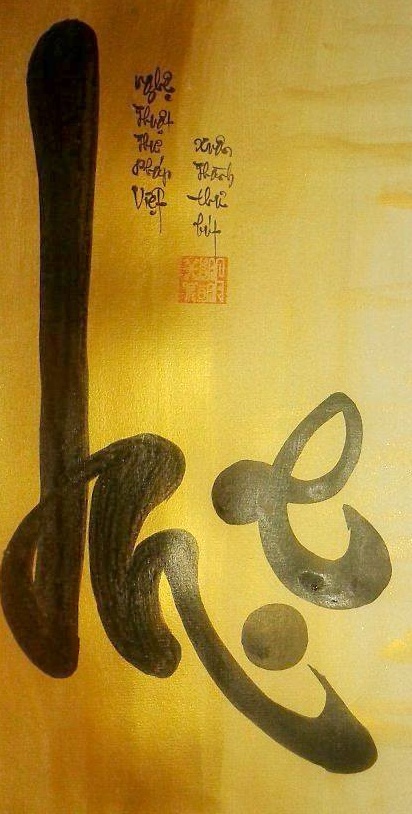 Mẹ
Nghệ
Thuật
Thư
Pháp
Việt
Xuân
Thành
thủ
bút